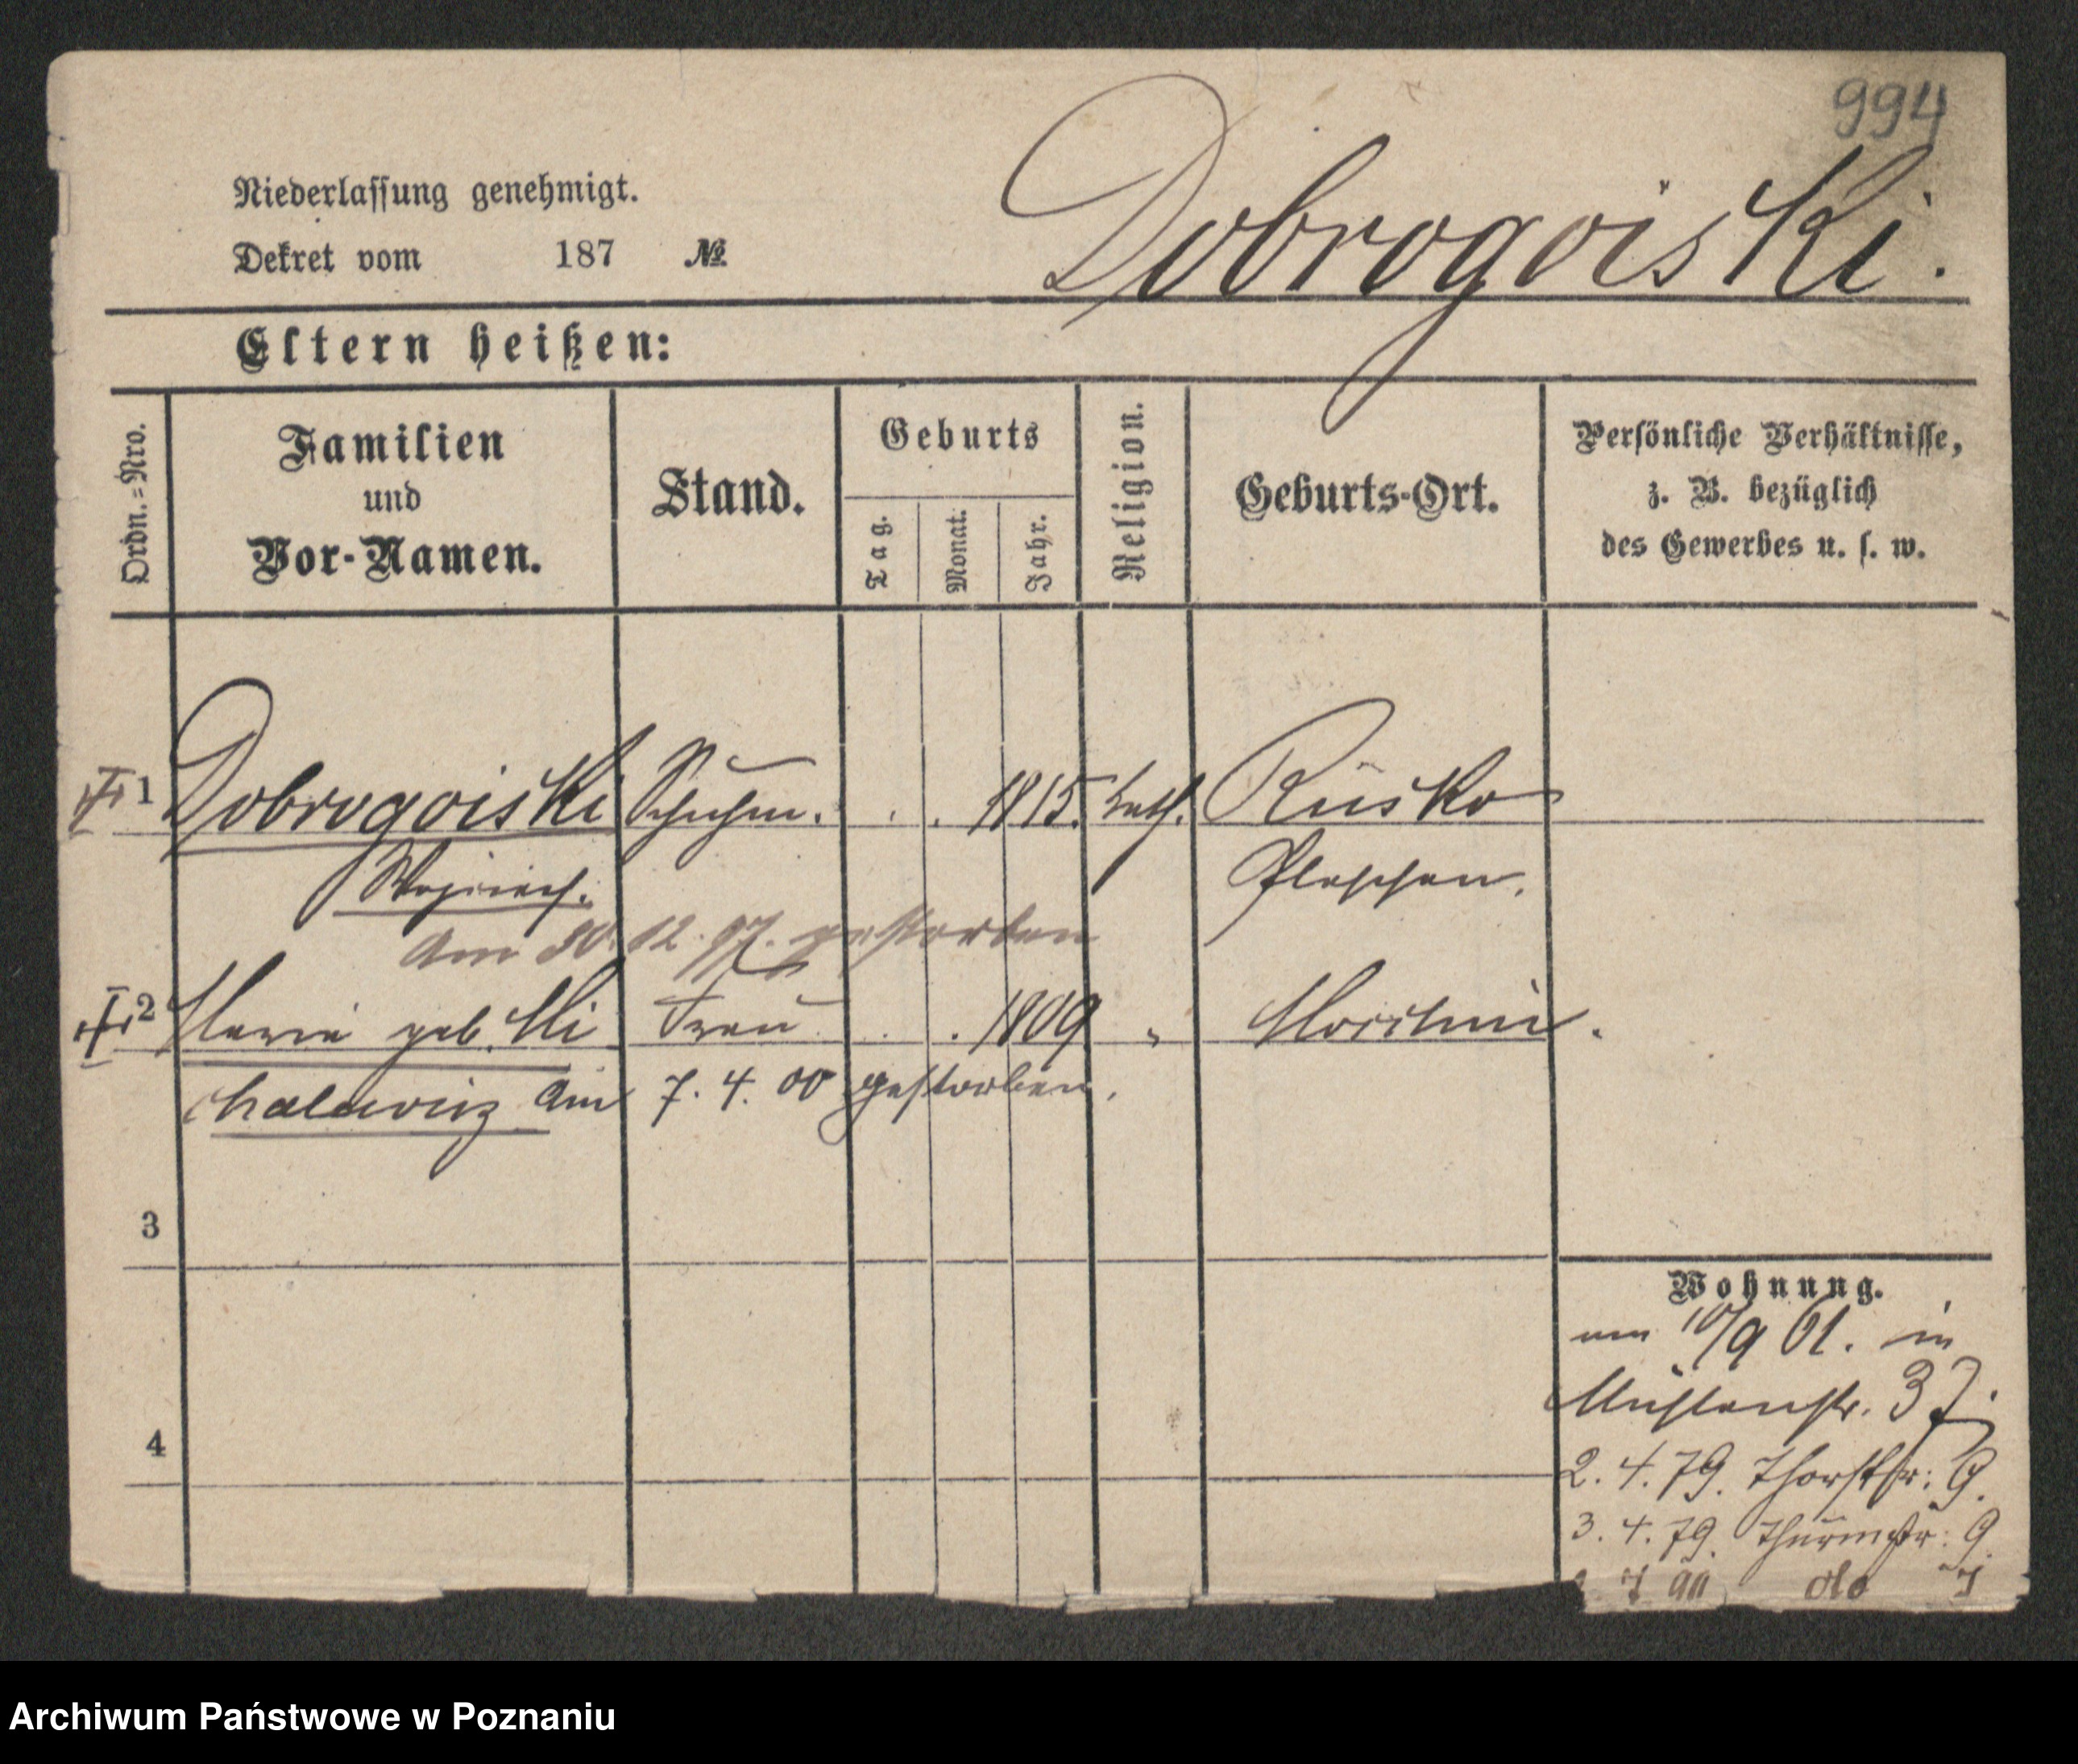 994
Niederlassung genehmigt.
Dobrogoiski.
Dekret vom 187 №
Eltern heißen:
Ordn.=Nro.
Familien
und
Vor-Namen.
Stand.
Geburts
Tag.
Monat.
Jahr.
Religion.
Geburts-Ort.
Persönliche Verhältnisse,
z. B. bezüglich
des Gewerbes u. s. w.
1 Dobrogoiski Schuhm. . . 1815. kath. Rusko
Wojciech. Pleschen.
Am 30. 12. 97. gestorben
2 Maria geb. Mi Frau . . 1809 "
chalewicz Am 7. 4. 00 gestorben.
3
4
Wohnung.
10/9 61. in
Mühlenstr. 37.
2. 4. 79. Thorstr: 9.
3. 4. 79. Thurmstr: 9.
do
Archiwum Państwowe w Poznaniu